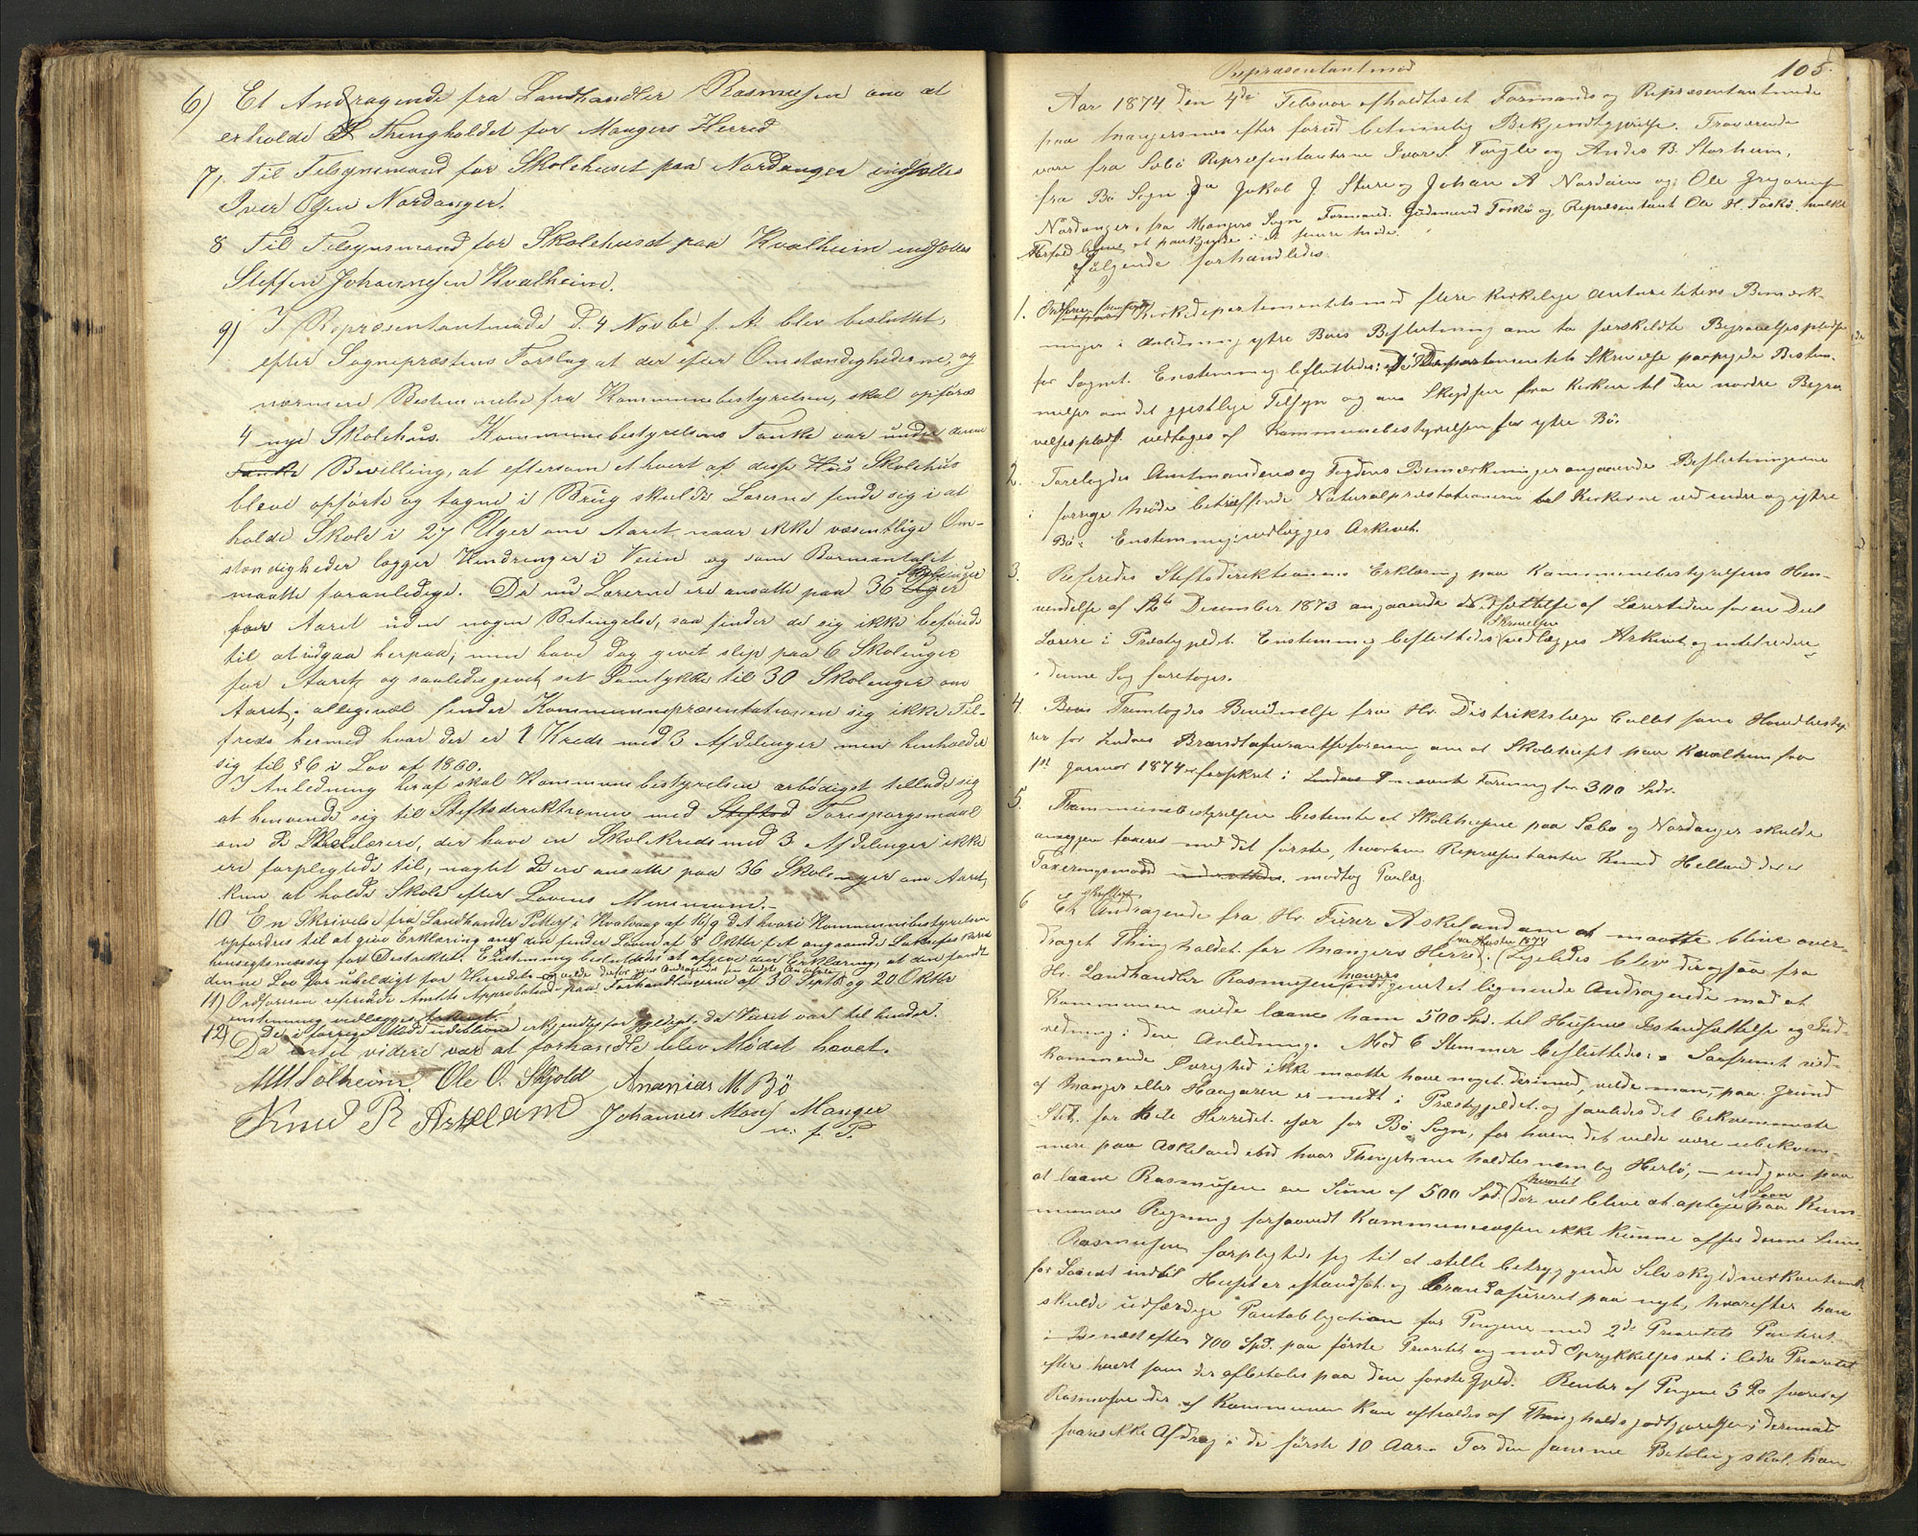 6) Et Andragende fra Landhandler Rasmusen om at
erholde Thingholdet for Mangers Herred
7, Til Tilsynsmand for Skolehuset paa Nordanger indsattes
Iver Olsen Nordanger.
8 Til Tilsynsmand for Skolehuset paa Kvalheim indsattes
Steffen Johannesen Kvalheim.
9) I Repræsentantmöde d. 4 Novbr f. A. blev besluttet,
efter Sognepræstens Forslag at der efter Omstændighederne, og
nærmere Bestemmelse fra Kommunebestyrelsen, skal opföres
4 nye Skolehus. Kommunebestyrelsens Tanke var under denne
Tanke Bevilling, at eftersom et hvert af disse Hus Skolehus
bleve opförte og tagne i Brug skulde Lærerne finde sig i at
holde Skole i 27 Uger om Aaret, naar ikke væsentlige Om-
stændigheder lagger Hindringer i Veien og som Barneantalet
maatte foranledige. Da nu Lærerne ere ansatte paa 36 Skoleuger
for Aaret uden nogen Betingelse, saa finder de sig ikke beföiede
til at indgaa herpaa, men have dog givet slip paa 6 Skoleuger
for Aaret, og saaledes givet sit Samtykke til 30 Skoleuger om
Aaret, alligevæl finder Kommunepræsentationen sig ikke Til-
freds hermed hvor der er 1 Kreds med 3 Afdelinger men henholder
sig til § 6 i Lov af 1860.
I Anledning heraf skal Kommunebestyrelsen ærbödigst tillade sig
at henvende sig til Stiftsdirektionen med Stiftsd Forespörgsmaal
om de Skolelærere, der have en Skolekreds med 3 Afdelinger ikke
ere forpligtede til, uagtet de ere ansatte paa 36 Skoleuger om Aaret,
kun at holde Skole efter Lovens Minimum.-
10 En Skrivelse fra Landhandler Petters i Kvalvaag af 16/9 d. A hvori Kommunebestyrelsen
opfordres til at give Erklæring om den finder Loven af 8 Oktbr f. A. angaaende
hensigtsmæssig for Distriktet. Enstemmig besluttedes at afgive den Erklæring, at den fandt
denne Lov for uheldigt for Herredet
11) Ordföreren refererede Amtets Approbation paa Forhandlingerne af 30 Septbr og 20 Oktbr
enstemmig vedlægges Arkivet.
12) De i forrige Möde udeblevne erkjendtes for gyldigt, da Veiret var til hinder.
Da intet videre var at forhandle blev Mödet hævet.
MM Solheim. Ole O. Skjold Ananias M Bö
Knud R Askeland Johannes Mons Manger
m. f. P.
Repræsentantmöd
105.
Aar 1874 den 4de Februar afholdtes et Formands og Repræsentantmöde
paa Mangersnes efter forud betimelig Bekjendtgjörelse. Fraværende
vare fra Sæbö Repræsentanterne Ivar S. Toyle og Andes B. Storheim,
fra Bö Sogn Jakob J. Sture og Johan A Nordeim og Ole Gregoriusen
Nordanger, fra Mangers Sogn Formand. Gudmund Toskö og Repræsentant Ole H. Toskö. hvilke
Forfald bleve at paakjende i et senere Möde.
Fölgende forhandledes.
1. Ordföreren fremlagde Kirkedepartementets med flere kirkelige Autoriteters Bemærk-
ninger i Anledning ytre Böes Beslutning om to forskjeldte Begravelsespladse
for Sognet. Enstemmig besluttedes: De i Departementets Skrivelse paapegede Bestem-
melser om det gjestlige Tilsyn og om Skydsen fra Kirken til den nordre Begra-
velsesplads vedtages af Kommunebestyrelsen for ytre Bö.
2. Forelagdes Amtmandens og Fogdens Bemærkninger angaaende Beslutningerne
i forrige Möde betræffende Naturalpræstationerne til Kirkerne ved indre og ytre
Bö. Enstemmig: vedlægges Arkivet.
3. Refererdes Stiftsdirektionens Erklæring paa Kommunebestyrelsens Hen-
vendelse af December 1873 angaaende Nedsættelse af Læsetiden for en Del
Lærere i Præstegjeldet. Enstemmig besluttedes Skrivelsen vedlægges Arkivet og intet videre
i denne Sag foretages.
4. Fremlagdes Bevidnelse fra Hr. Distriktslæge Collet som Hovedbesty-
rer for Lindaas Brandassuranceforening om at Skolehuset paa Kvalheim fra
1ste Januar 1874 er forsikret i nævnte Forening for 300 Spdr.
5. Kommunebestyrelsen bestemte at Skolehusene paa Sæbö og Nordanger skulde
ansøges taxeres med det förste, hvorom Repræsentanten Knud Helland der er
Taxeringsmand underrettedes. modtog Paalæg
6 Et skriftligt Andragende fra Hr. Furer Askeland om at maatte blive over-
draget Thingholdet for Mangers Herred fra Höster 1874. Ligeledes blev derogsaa fra
Hr. Landhandler Rasmusen Manger indgivet et lignende Andragende mod at
Kommunen vilde laane ham 500 Spd. til Husenes Istandsættelse og Ind-
redning i den Anledning. Mod 6 Stemmer besluttedes: Saafremt ved-
kommende Övrighed ikke maatte have noget derimod, vilde man, paa Grund
af Manger eller Haugaren er midt i Præstegjeldet og saaledes det bekvemmeste
Sted for hele Herredet. for Bö Sogn, for hvem det vilde være ubekvem-
mere paa Askeland end hvor Thingstuene holdtes nemlig Herlö, — indgaa paa
at laane Rasmusen en Sum af 500 Spd. (der hvortil vil blive at optage et Laan paa Kom-
munens Regning forsaavidt Kommunecassen ikke kunne afse denne Sum.
Rasmusen forpligtede sig til at stille betryggende Selvskyldnerkaution
for Laanet indtil Huset er istandsat og Brandassureret paa nyt, hvorefter han
skulde udfærdige Pantobligation for Pengene med 2de Prioritets Panteret
næst efter 700 Spd. paa förste Prioritet og med Oprykkelses ret i ledig Prioritet
efter hvert som der afbetales paa den förste Gjeld. Renter af Pengene 5 % svares af
Rasmusen der af Kommunen kan afholdes af Thingholdsgodtgjørelsen; derimod
svares ikke Afdrag i de förste 10 Aar. For den samme Betaling skal han